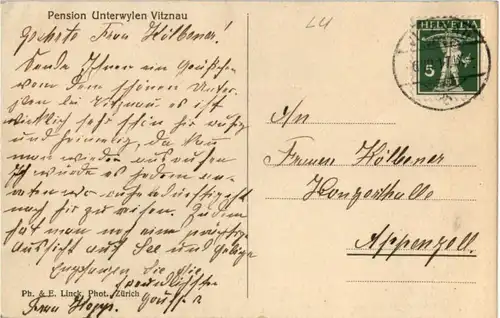 Pension Unterwylen Vitznau
LU
HELVETIA
5
Geehrte Frau Kölbener!
Sende Ihnen ein Grüßchen
vom dem schönen Unter-
wylen bei Vitznau es ist
wirklich sehr schön hir ruhig
und heimelig, da kan
man wieder ausruhen
Ich würde es jedem
nach hir zu reisen. Zudem
hat man noch eine prächtige
Aussicht auf See und Gebirge
Empfangen Sie die
freundlichsten
Grüsse
Frau Hopp.
Ph. & E. Linck, Phot., Zürich
An
Frauen Kölbener
Konzerthalle
Appenzell.